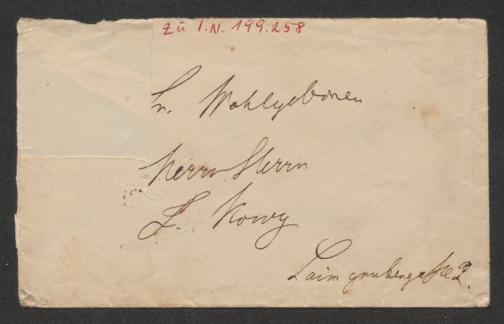 Zu I.N. 199.258
Sr. Wohlgeboren
Herrn Herrn
L. Kowy
Laimgrubengasse 2.